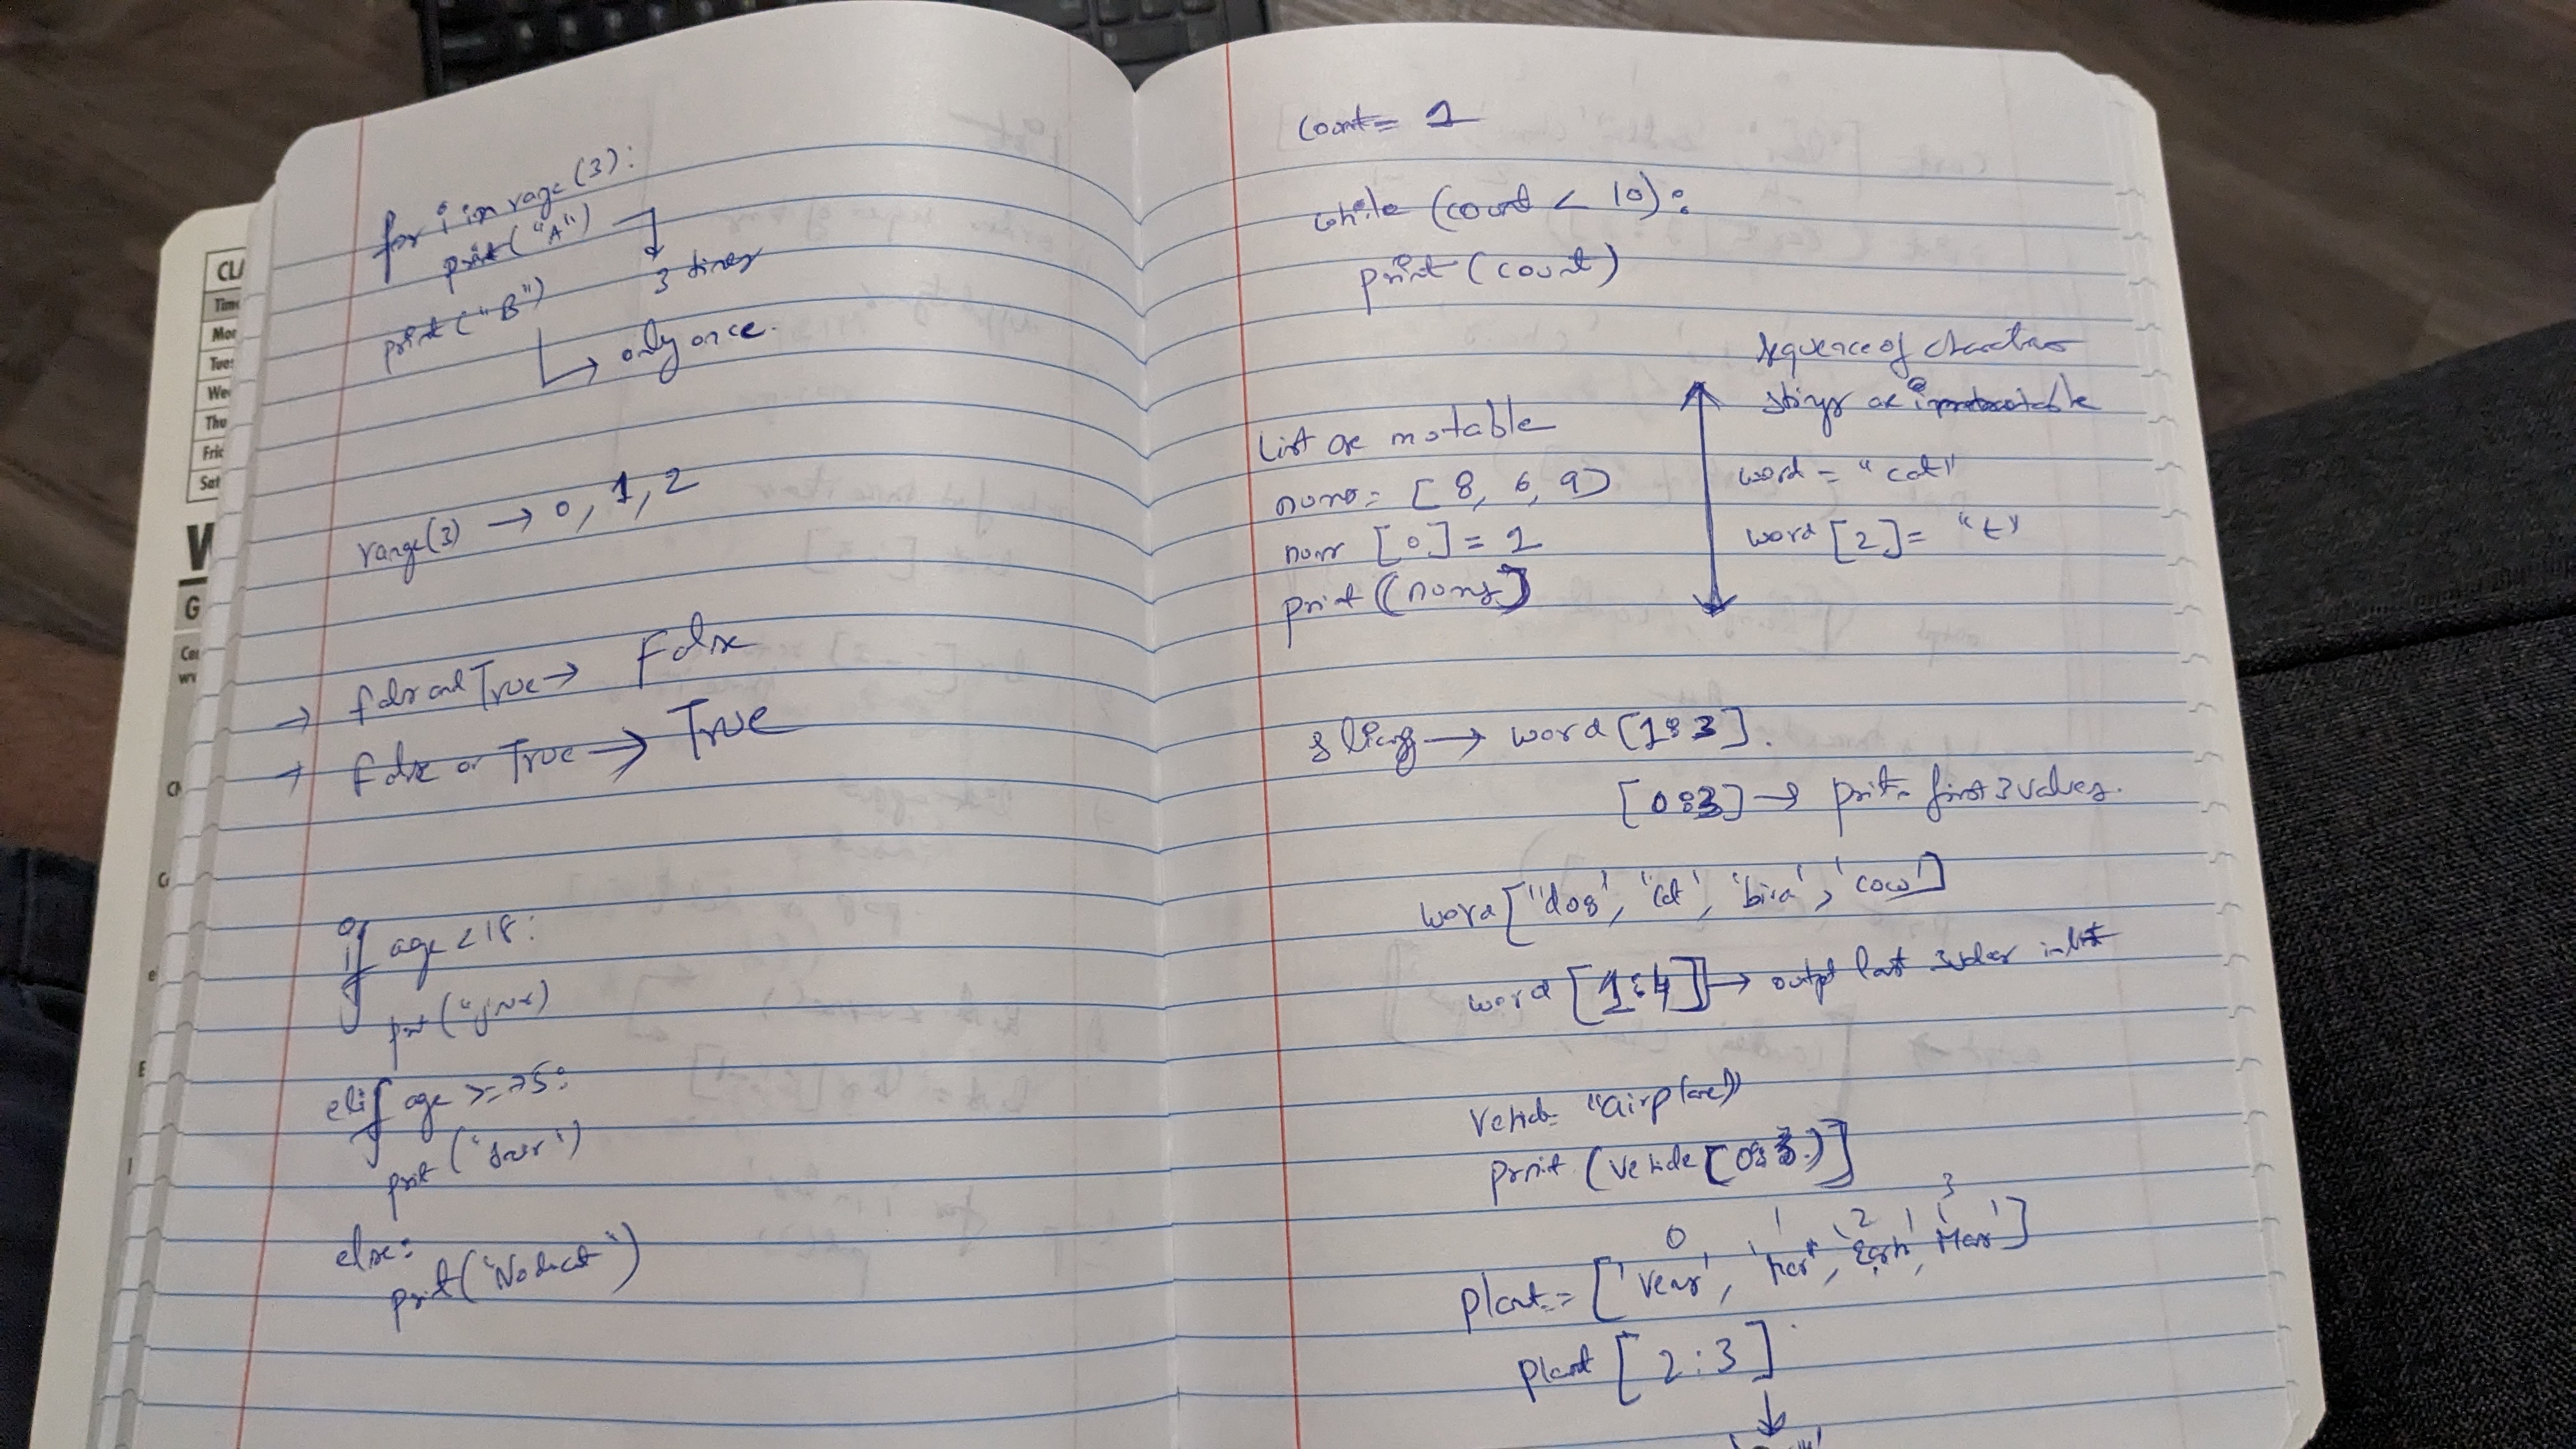 CL
Time
Mon
Tues
Wed
Thu
Fri
Sat
for i in range(3):
print("A")
3 times
print("B")
only once.
range(3) → 0, 1, 2
→ False and True → False
→ False or True → True
if age < 18:
print(
elif age >= 75:
print(
else:
print("No
count = 1
while (count < 10):
print(count)
List are mutable
nums = [8, 6, 9]
nums [0] = 1
print(nums)
sequence of characters
strings are
word = "cat"
word [2] = "t"
slicing → word [1:3].
[0:3] → print first 3 values.
word ["dog', 'cat', 'bird', 'cow']
word [1:4] → output last 3 values in list
Vehicle "airplane"
print (vehicle [0:3)]
0 1 2 3
planet = ['Venus', 'Earth', 'Mars']
planet [2:3]
↓